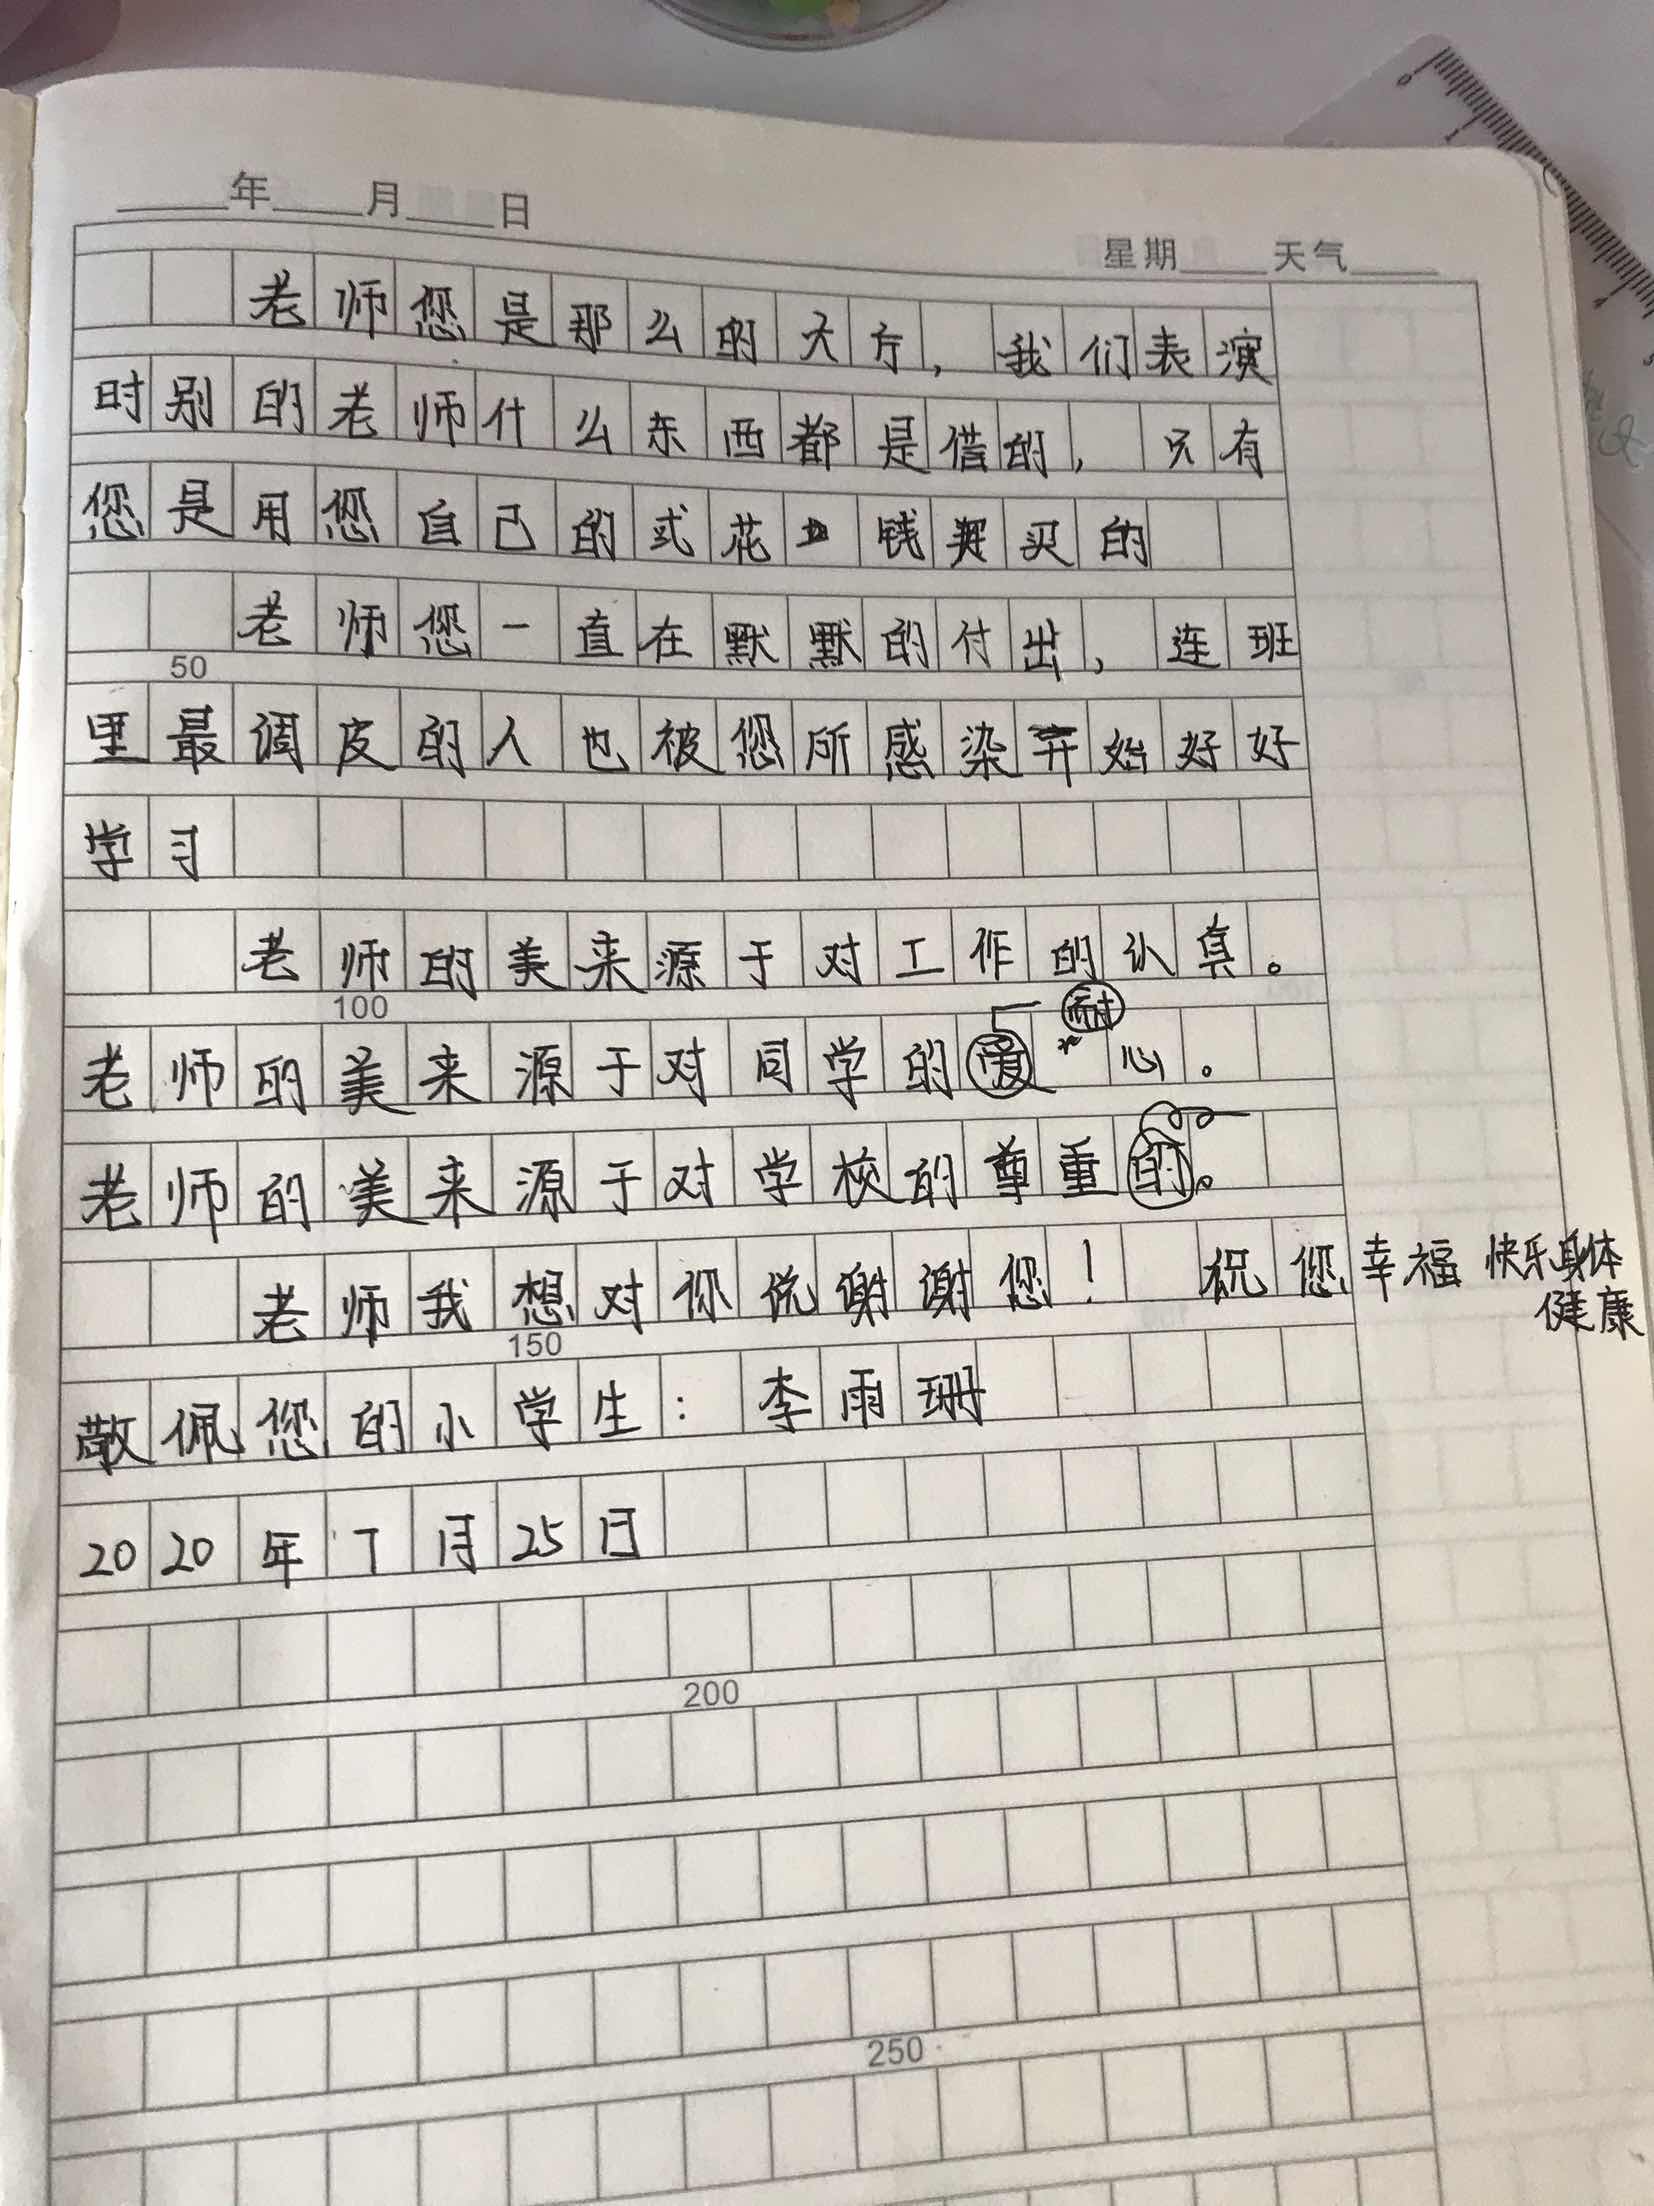 年 月 日
星期 天气
老师您是那么的大方，我们表演
时别的老师什么东西都是借的，只有
您是用您自己的或花钱买的
老师您一直在默默的付出，连班
50
里最调皮的人也被您所感染开始好好
学习
老师的美来源于对工作的认真。
100
耐
老师的美来源于对同学的爱心。
老师的美来源于对学校的尊重的。
老师我想对你说谢谢您！ 祝您幸福 快乐身体
健康
150
敬佩您的小学生：李雨珊
2020年7月25日
200
250